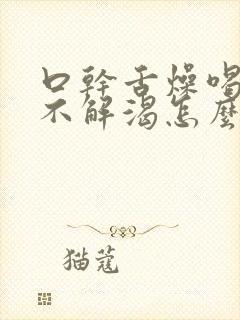 口幹舌燥喝
不解渴怎麼
猫蔻